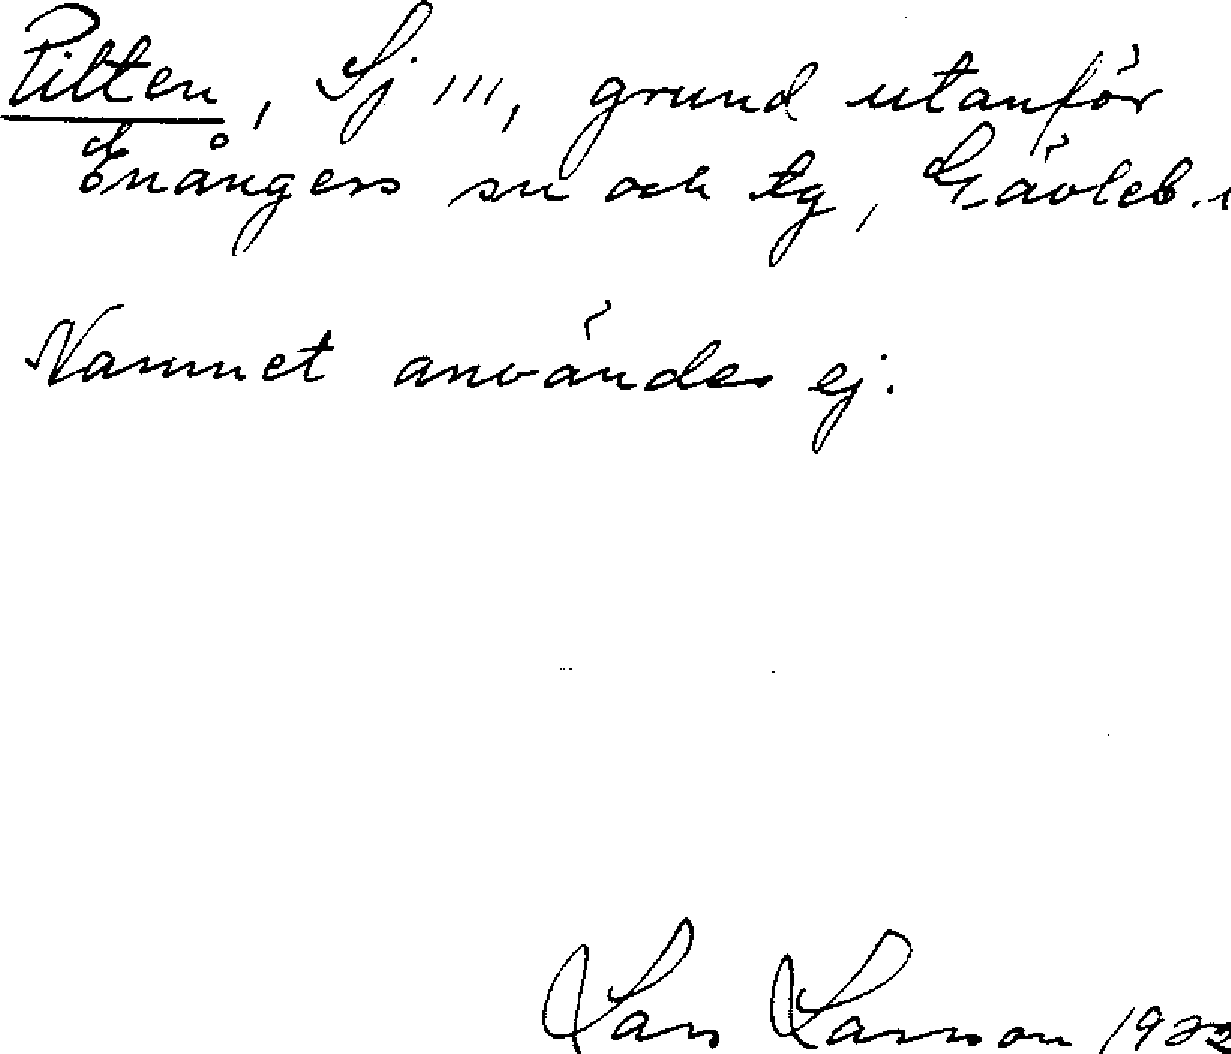 Pilten, Sj III, grund utanför
Enångers sn och tg, Gävleb.
Namnet användes ej.
Lars Larsson 1922